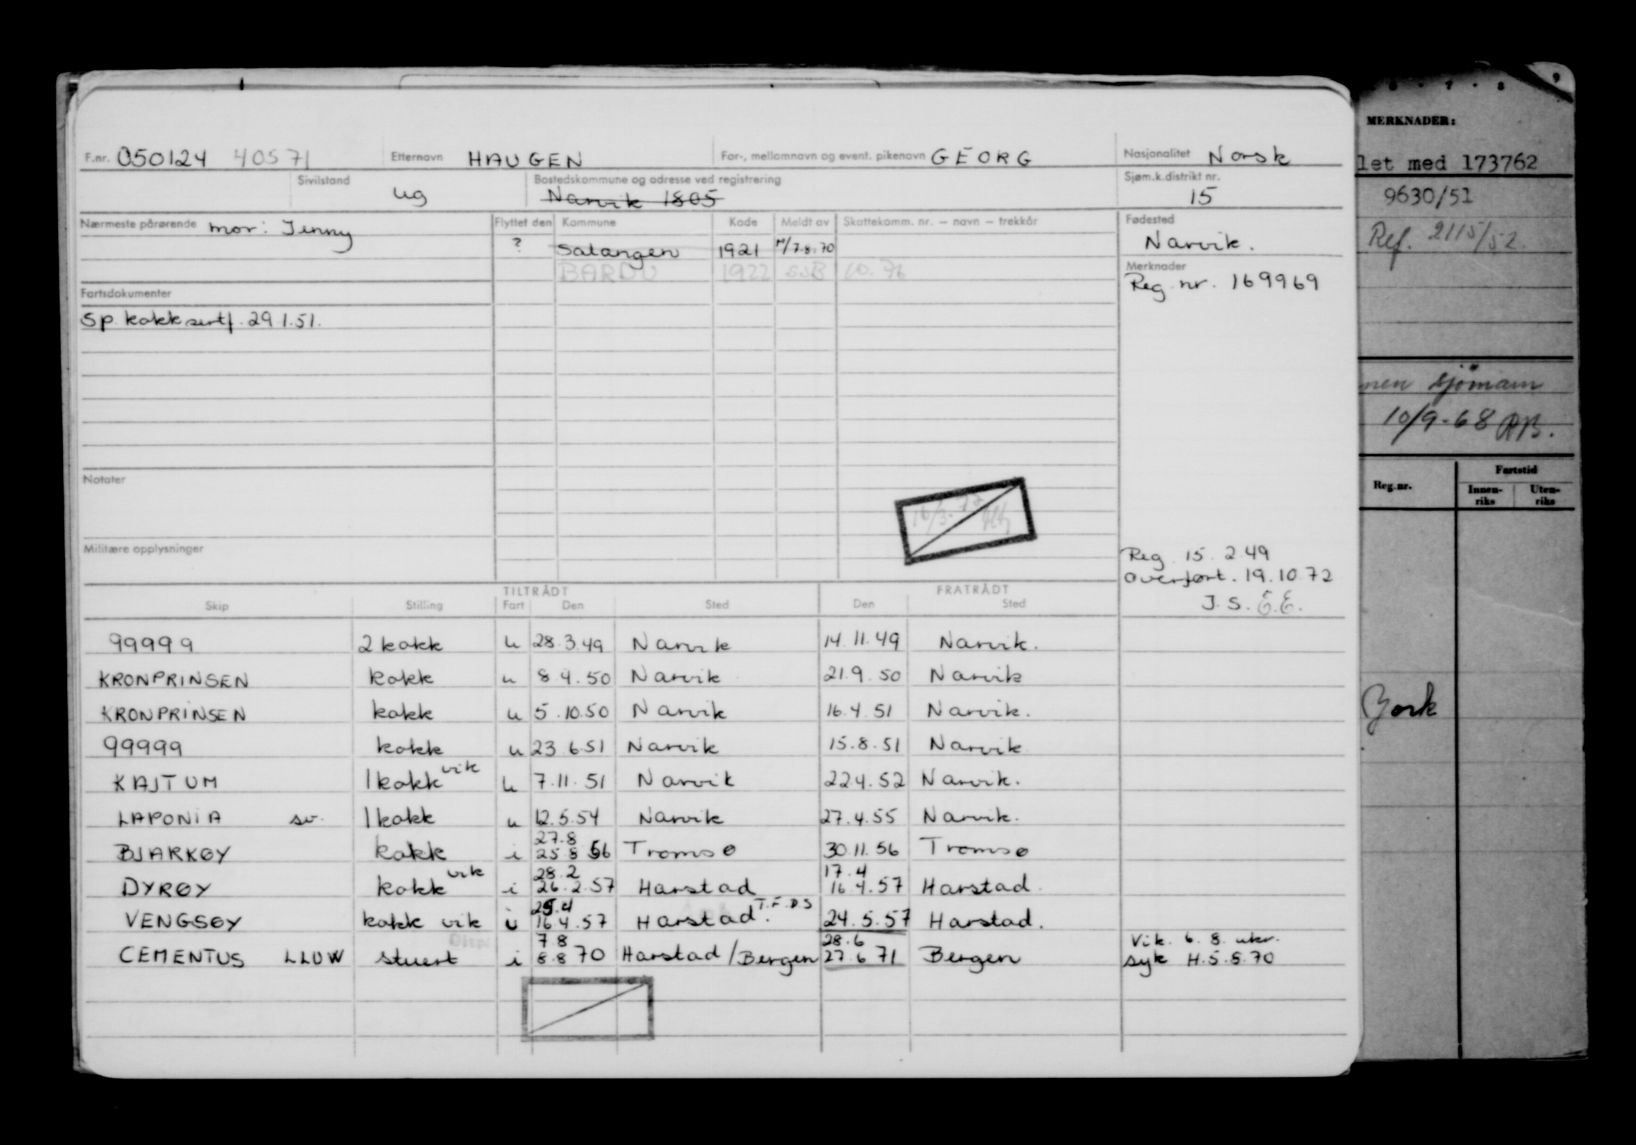 F.nr. 050124 40571 Etternavn HAUGEN For-, mellomnavn og event. pikenavn GEORG Nasjonalitet Norsk
Sivilstand ug Bostedskommune og adresse ved registrering Narvik 1805 Sjøm.k.distrikt nr. 15
Nærmeste pårørende mor: Jenny Flyttet den Kommune Kode Meldt av Skattekomm. nr. – navn – trekkår Fødested
? Salangen 1921 M/7.8.70 Narvik.
BARDU 1922 SSB 10.76 Merknader
Reg. nr. 169969
Fartsdokumenter
Sp. kokksertf. 29.1.51.
Notater
16/3-77
Militære opplysninger
Reg. 15.2.49
Overført. 19.10.72
J.S. E.E.
TILTRÅDT FRATRÅDT
Skip Stilling Fart Den Sted Den Sted
99999 2 kokk u 28.3.49 Narvik 14.11.49 Narvik.
KRONPRINSEN kokk u 8.4.50 Narvik 21.9.50 Narvik
KRONPRINSEN kokk u 5.10.50 Narvik 16.4.51 Narvik.
99999 kokk u 23.6.51 Narvik 15.8.51 Narvik
KAJTUM 1 kokk vik u 7.11.51 Narvik 22.4.52 Narvik.
LAPONIA sv. 1 kokk u 12.5.54 Narvik 27.4.55 Narvik.
27.8
BJARKØY kokk i 25.8 56 Tromsø 30.11.56 Tromsø
28.2 17.4
DYRØY kokk vik i 26.2.57 Harstad 16.4.57 Harstad.
25.4 T.F.D.S
VENGSØY kokk vik i 16.4.57 Harstad. 24.5.57 Harstad.
7.8 28.6 Vik. 6. 8. uker.
CEMENTUS LLUW stuert i 8.8 70 Harstad/Bergen 27.6 71 Bergen syk H.5.8.70
6 · 7 · 8 9
MERKNADER:
let med 173762
9630/51
Ref. 2115/52.
nen sjømann
10/9-68 RB.
Reg.nr. Fartstid
Innen-riks Uten-riks
York